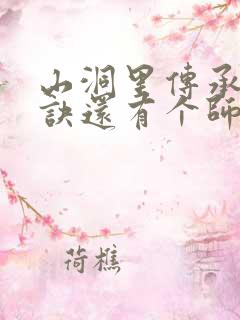 山洞里傳承
訣還有个師
荷樵